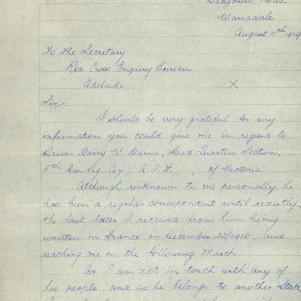 Wansdale
August 11th 1919
To The Secretary
Red Cross Enquiry Bureau
Adelaide
Sir,
I should be very grateful for any
information you could give me in regard to
Driver Harry W. Head Quarters Section,
8th Coy, A.I.F. , of Victoria.
Although unknown to me personally, he
has been a regular correspondent until recently,
the last letter I received from him being
written in France on December 22/1918, and
reaching me in the following March.
As I am not in touch with any of
his people, and as he belongs to another State,